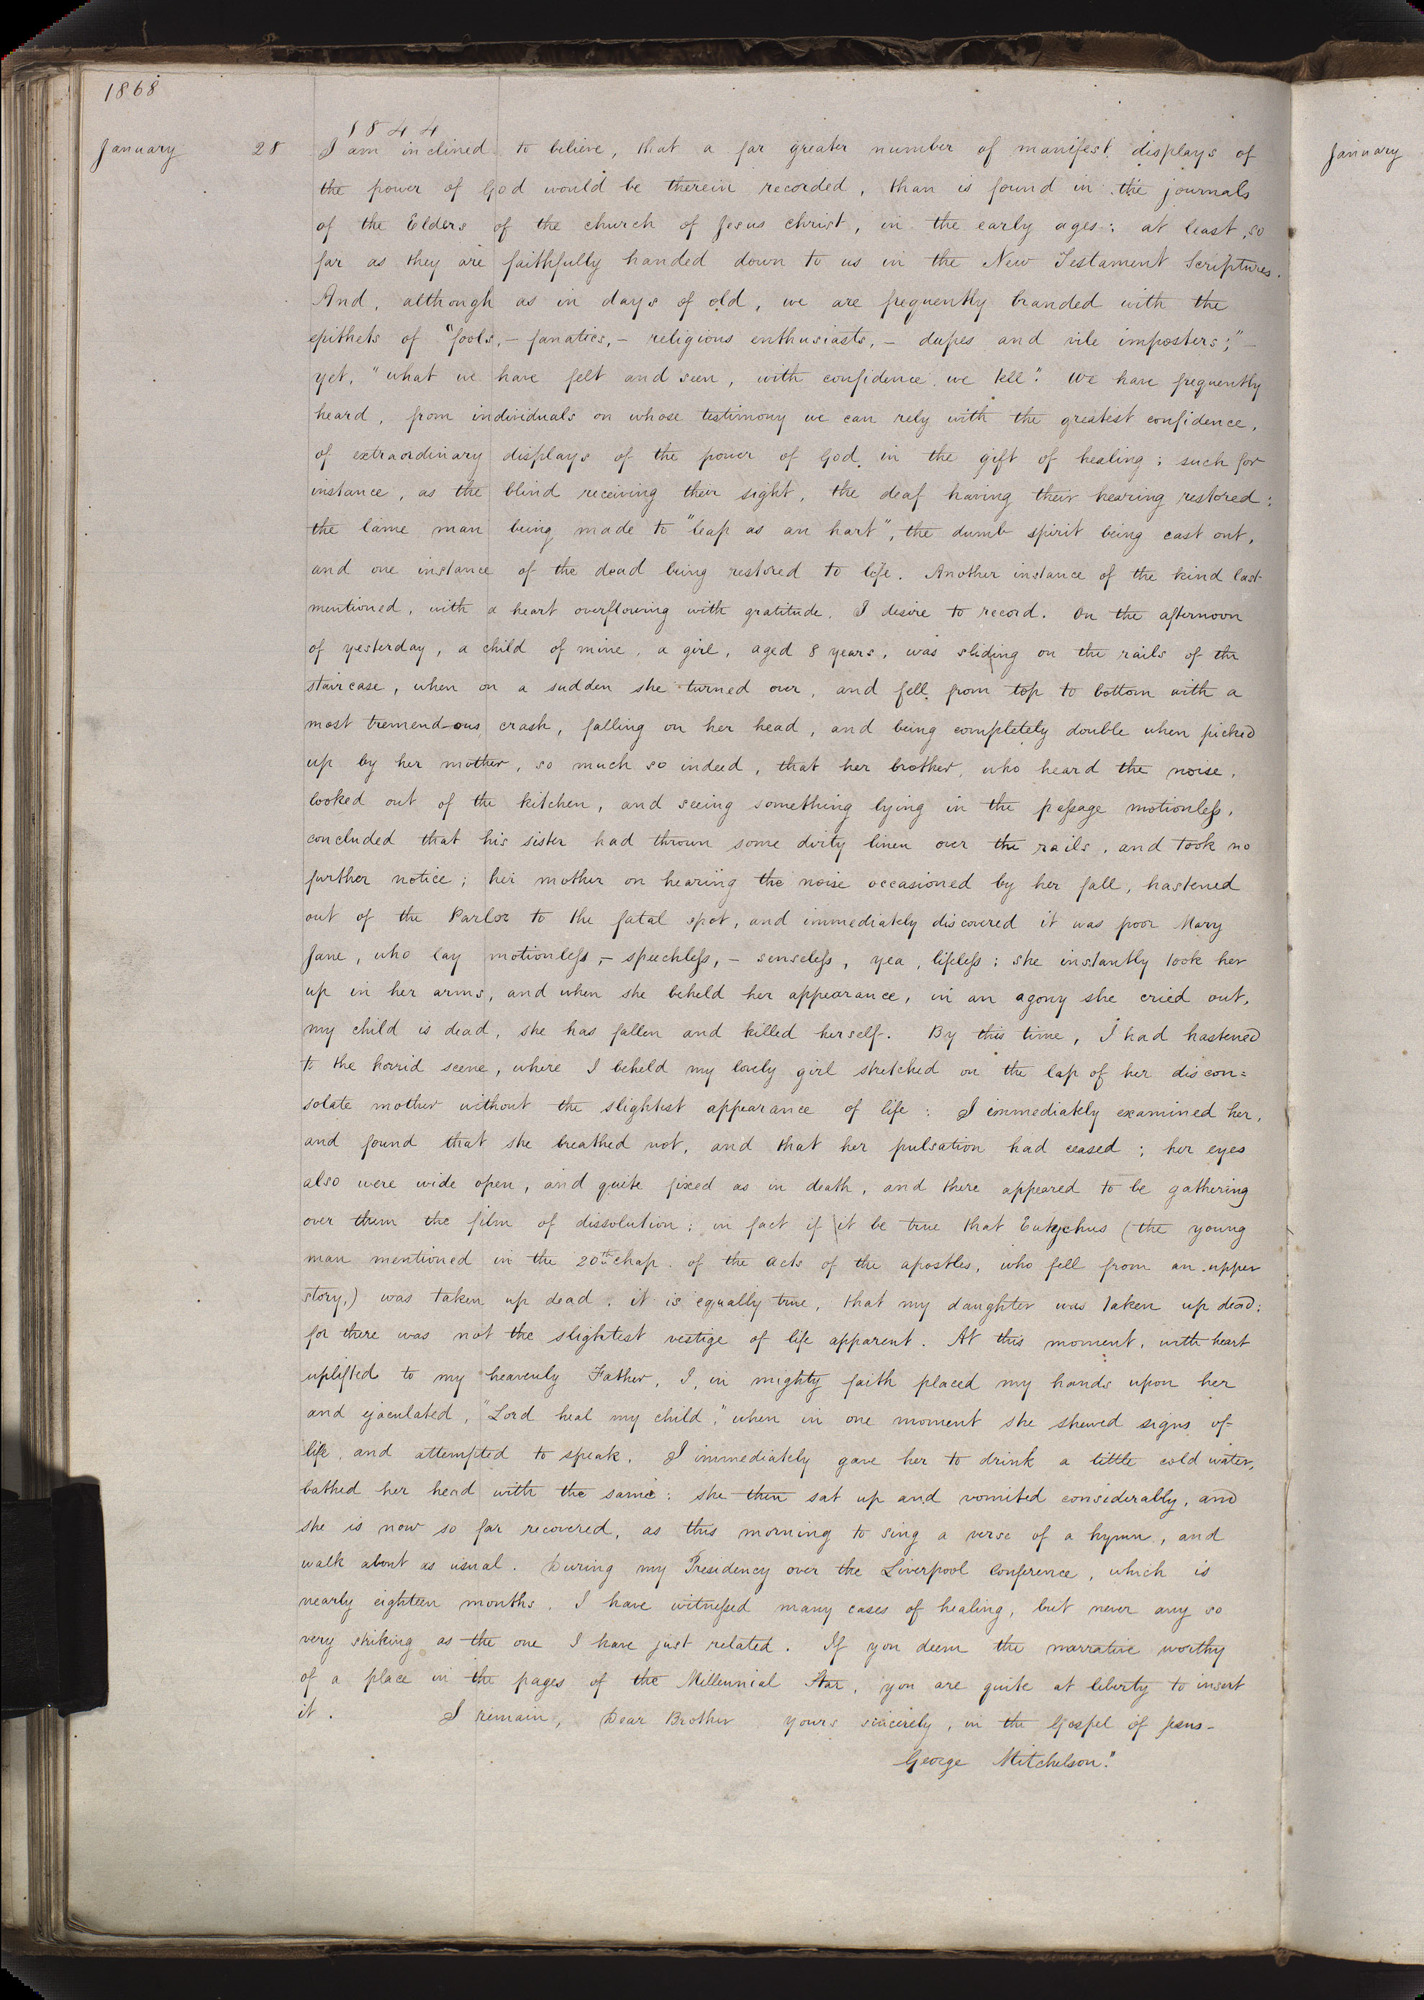 1868
1844
January 28 I am inclined to believe, that a far greater number of manifest displays of
the power of God would be therein recorded, than is found in the journals
of the Elders of the church of Jesus Christ, in the early ages: at least, so
far as they are faithfully handed down to us in the New Testament Scriptures.
And, although as in days of old, we are frequently branded with the
epithets of "fools,- fanatics,- religious enthusiasts,- dupes and vile imposters;"-
yet, "what we have felt and seen, with confidence we tell". We have frequently
heard, from individuals on whose testimony we can rely with the greatest confidence,
of extraordinary displays of the power of God, in the gift of healing; such for
instance, as the blind receiving their sight, the deaf having their hearing restored;
the lame man being made to "leap as an hart", the dumb spirit being cast out,
and one instance of the dead being restored to life. Another instance of the kind last
mentioned, with a heart overflowing with gratitude, I desire to record. On the afternoon
of yesterday, a child of mine, a girl, aged 8 years, was sliding on the rails of the
staircase, when on a sudden she turned over, and fell from top to bottom with a
most tremendous crash, falling on her head, and being completely double when picked
up by her mother, so much so indeed, that her brother, who heard the noise,
looked out of the kitchen, and seeing something lying in the passage motionless,
concluded that his sister had thrown some dirty linen over the rails, and took no
further notice; her mother on hearing the noise occasioned by her fall, hastened
out of the Parlor to the fatal spot, and immediately discovered it was poor Mary
Jane, who lay motionless,- speechless,- senseless, yea, lifeless: she instantly took her
up in her arms, and when she beheld her appearance, in an agony she cried out,
my child is dead, she has fallen and killed herself. By this time, I had hastened
to the horrid scene, where I beheld my lovely girl stretched on the lap of her discon=
solate mother without the slightest appearance of life: I immediately examined her,
and found that she breathed not, and that her pulsation had ceased; her eyes
also were wide open, and quite fixed as in death, and there appeared to be gathering
over them the film of dissolution: in fact if it be true that Eutychus (the young
man mentioned in the 20th chap. of the acts of the apostles, who fell from an upper
story,) was taken up dead, it is equally true, that my daughter was taken up dead;
for there was not the slightest vestige of life apparent. At this moment, with heart
uplifted to my heavenly Father, I, in mighty faith placed my hands upon her
and ejaculated, "Lord heal my child", when in one moment she shewed signs of
life, and attempted to speak. I immediately gave her to drink a little cold water,
bathed her head with the same: she then sat up and vomited considerably, and
she is now so far recovered, as this morning to sing a verse of a hymn, and
walk about as usual. During my Presidency over the Liverpool Conference, which is
nearly eighteen months, I have witnessed many cases of healing, but never any so
very striking as the one I have just related. If you deem the narrative worthy
of a place in the pages of the Millennial Star, you are quite at liberty to insert
it. I remain, Dear Brother yours sincerely, in the Gospel of Jesus-
George Mitchelson."
January